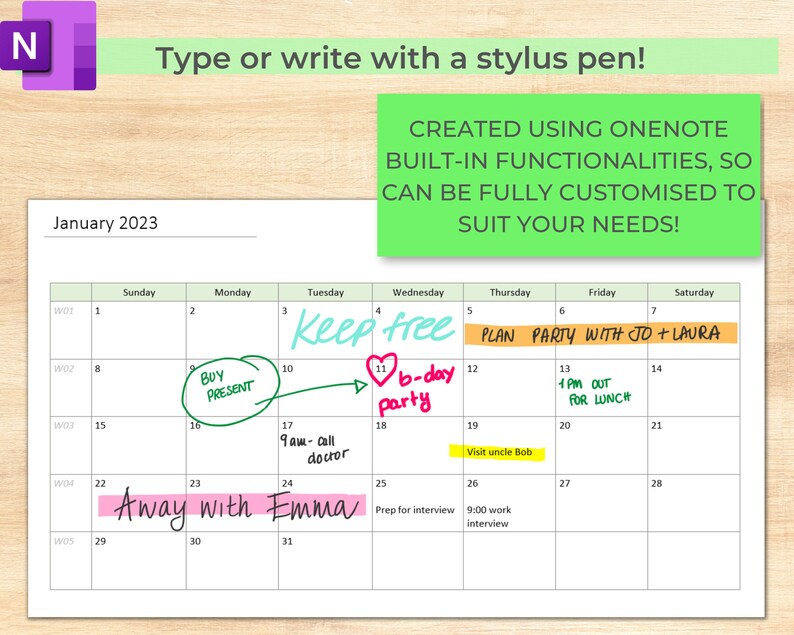 N
Type or write with a stylus pen!
CREATED USING ONENOTE
BUILT-IN FUNCTIONALITIES, SO
CAN BE FULLY CUSTOMISED TO
SUIT YOUR NEEDS!
January 2023
Sunday Monday Tuesday Wednesday Thursday Friday Saturday
W01 1 2 3 4 5 6 7
Keep free
PLAN PARTY WITH JO + LAURA
W02 8 9 10 11 12 13 14
BUY
PRESENT
b-day
party
1PM OUT
FOR LUNCH
W03 15 16 17 18 19 20 21
9am - call
doctor
Visit uncle Bob
W04 22 23 24 25 26 27 28
Away with Emma
Prep for interview
9:00 work
interview
W05 29 30 31